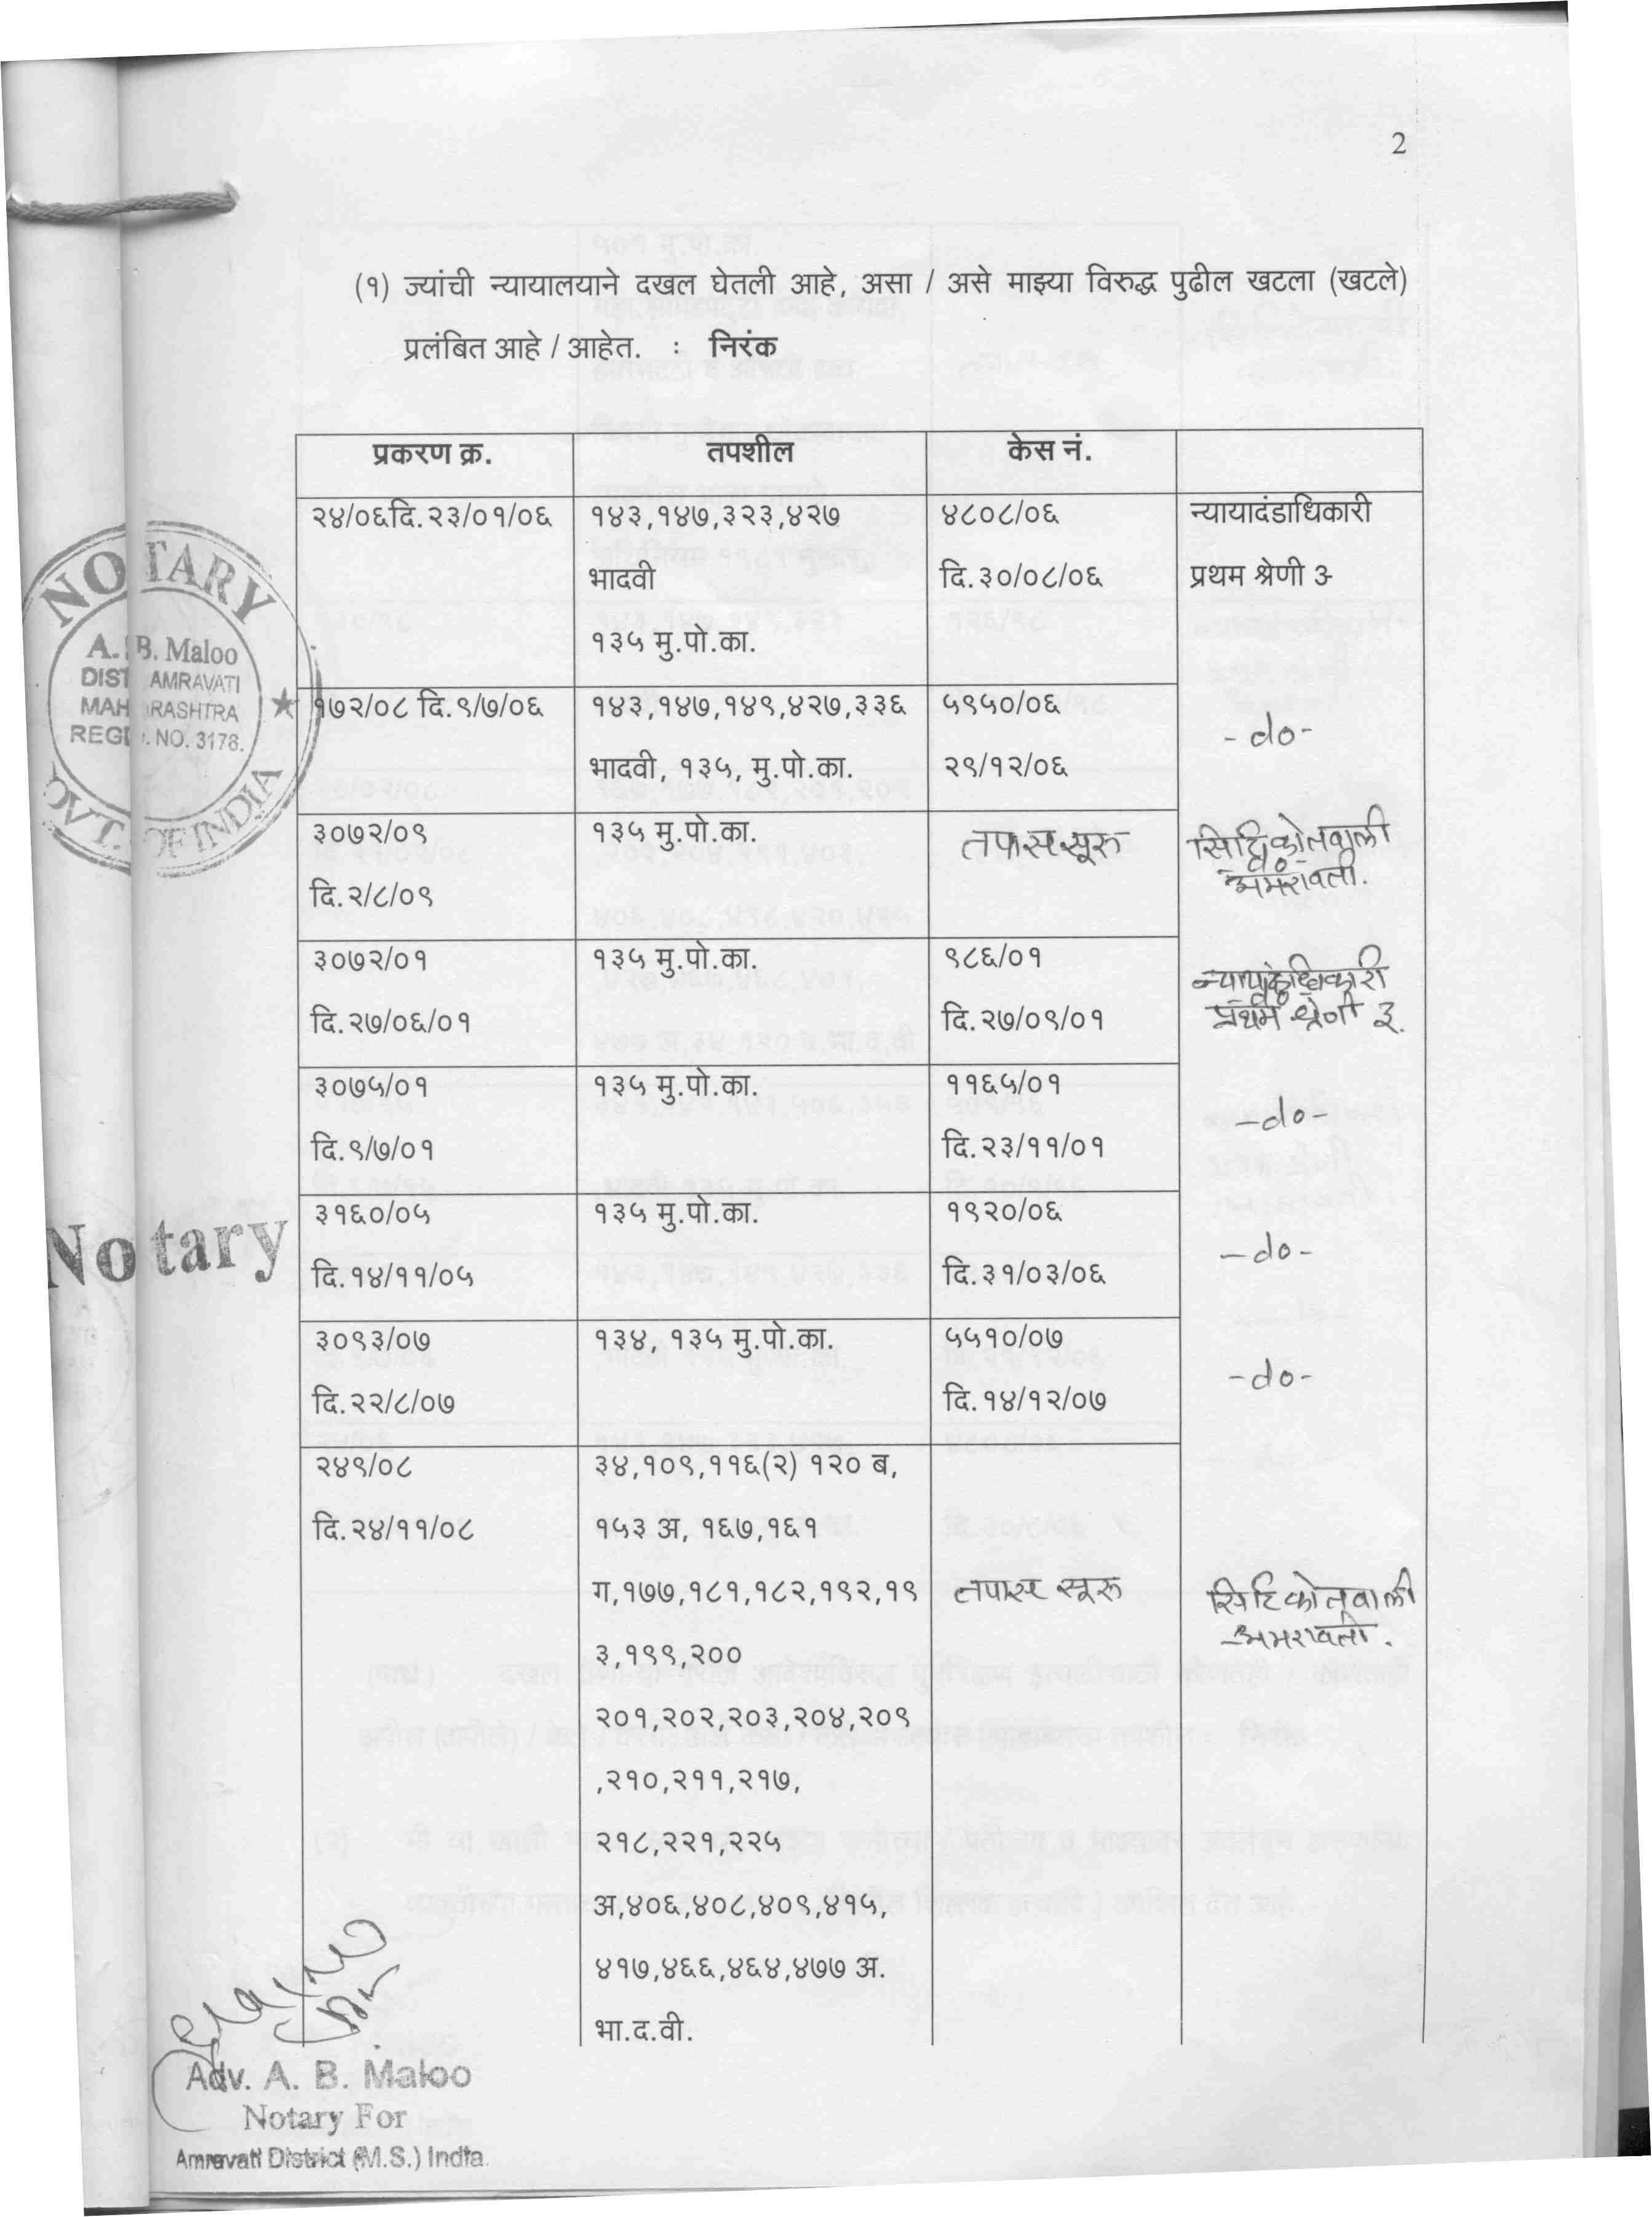 2
(१) ज्यांची न्यायालयाने दखल घेतली आहे, असा / असे माझ्या विरुद्ध पुढील खटला (खटले)
प्रलंबित आहे / आहेत. : निरंक
प्रकरण क्र. तपशील केस नं.
२४/०६दि.२३/०१/०६ १४३,१४७,३२३,४२७ ४८०८/०६ न्यायादंडाधिकारी
भादवी दि.३०/०८/०६ प्रथम श्रेणी ३
१३५ मु.पो.का.
१७२/०८ दि.९/७/०६ १४३,१४७,१४९,४२७,३३६ ५९५०/०६ - do -
भादवी, १३५, मु.पो.का. २९/१२/०६
३०७२/०९ १३५ मु.पो.का. तपास सूरू सिटि कोतवाली
दि.२/८/०९ अमरावती.
३०७२/०१ १३५ मु.पो.का. ९८६/०१
दि.२७/०६/०१ दि.२७/०९/०१ प्रथम श्रेणी ३.
३०७५/०१ १३५ मु.पो.का. ११६५/०१ - do -
दि.९/७/०१ दि.२३/११/०१
३१६०/०५ १३५ मु.पो.का. १९२०/०६ - do -
दि.१४/११/०५ दि.३१/०३/०६
३०९३/०७ १३४, १३५ मु.पो.का. ५५१०/०७ - do -
दि.२२/८/०७ दि.१४/१२/०७
२४९/०८ ३४,१०९,११६(२) १२० ब,
दि.२४/११/०८ १५३ अ, १६७,१६१
ग,१७७,१८१,१८२,१९२,१९ तपास सूरू सिटि कोतवाली
३,१९९,२०० अमरावती.
२०१,२०२,२०३,२०४,२०९
,२१०,२११,२१७,
२१८,२२१,२२५
अ,४०६,४०८,४०९,४१५,
४१७,४६६,४६४,४७७ अ.
भा.द.वी.
NOTARY
A. B. Maloo
DIST. AMRAVATI
MAHARASHTRA
REGD. NO. 3178.
GOVT. OF INDIA
Notary
Adv. A. B. Maloo
Notary For
Amravati District (M.S.) India.